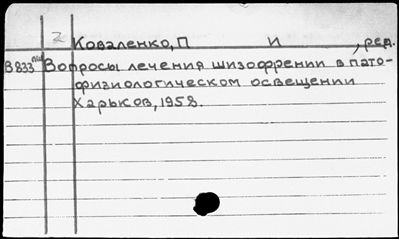 2 Коваленко, П И , ред.
В833 Вопросы лечения шизофрении в пато-
физиологическом освещении
Харьков, 1958.